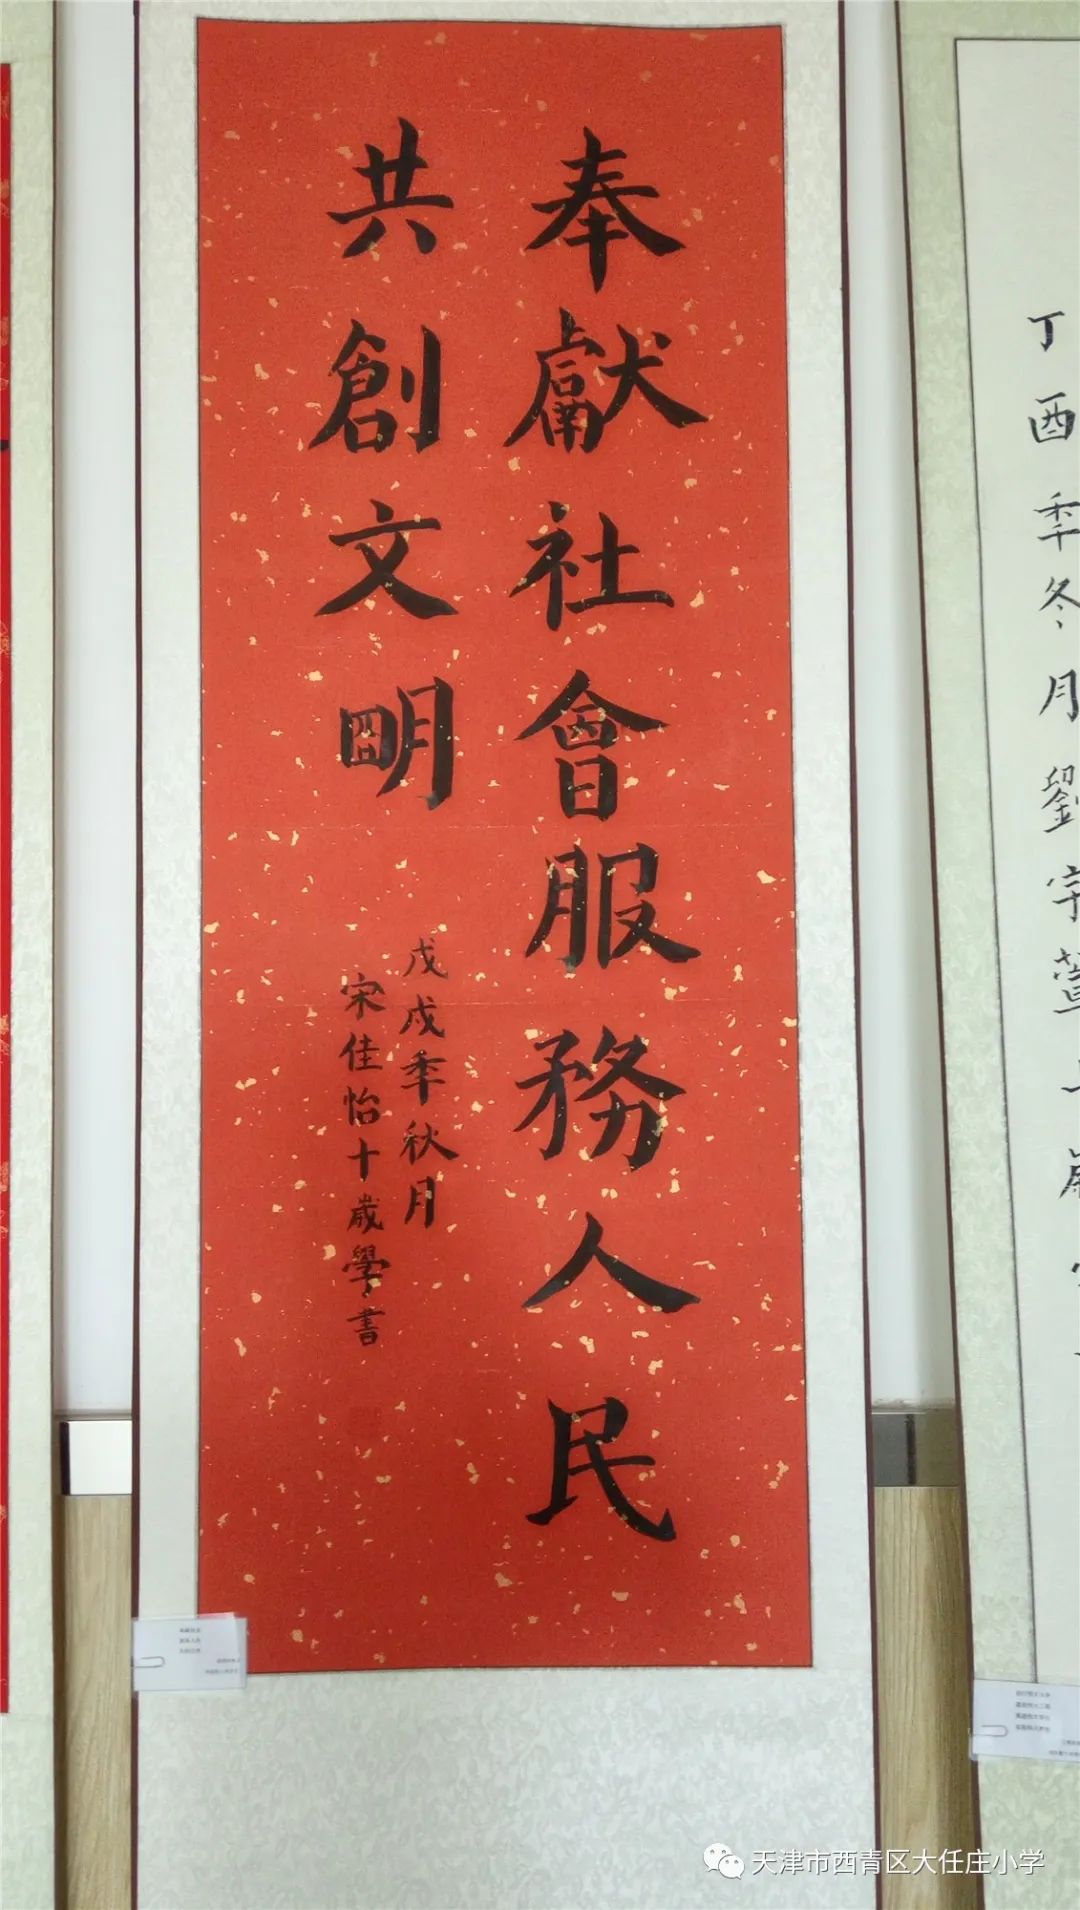 奉獻社會服務人民
共創文明
戊戌年秋月
宋佳怡十歲學書
丁酉年冬月劉宇
天津市西青区大任庄小学